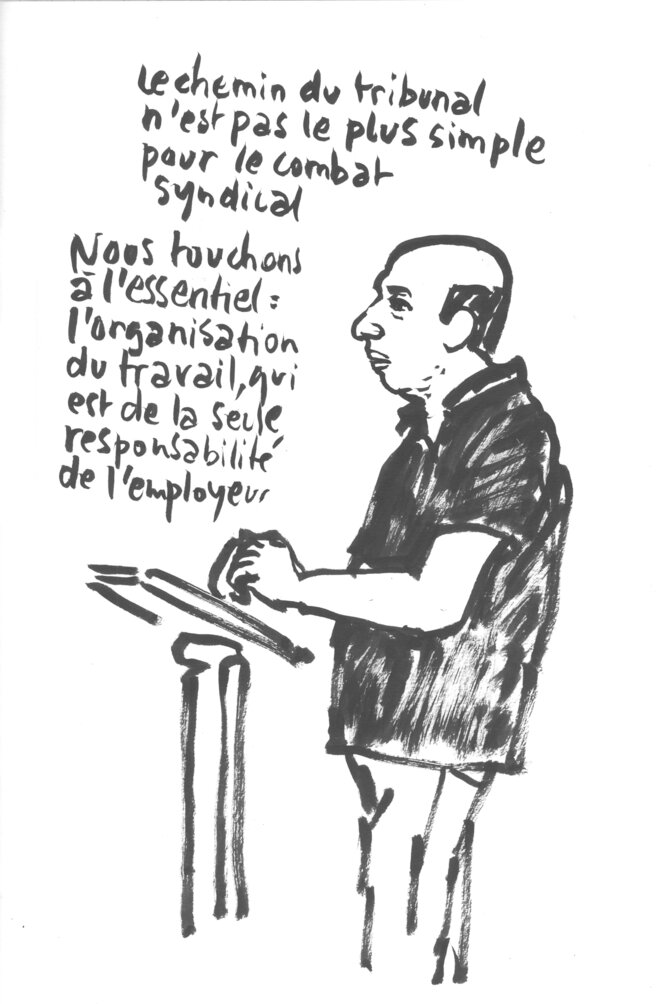 Le chemin du tribunal
n'est pas le plus simple
pour le combat
syndical
Nous touchons
à l'essentiel :
l'organisation
du travail, qui
est de la seule
responsabilité
de l'employeur